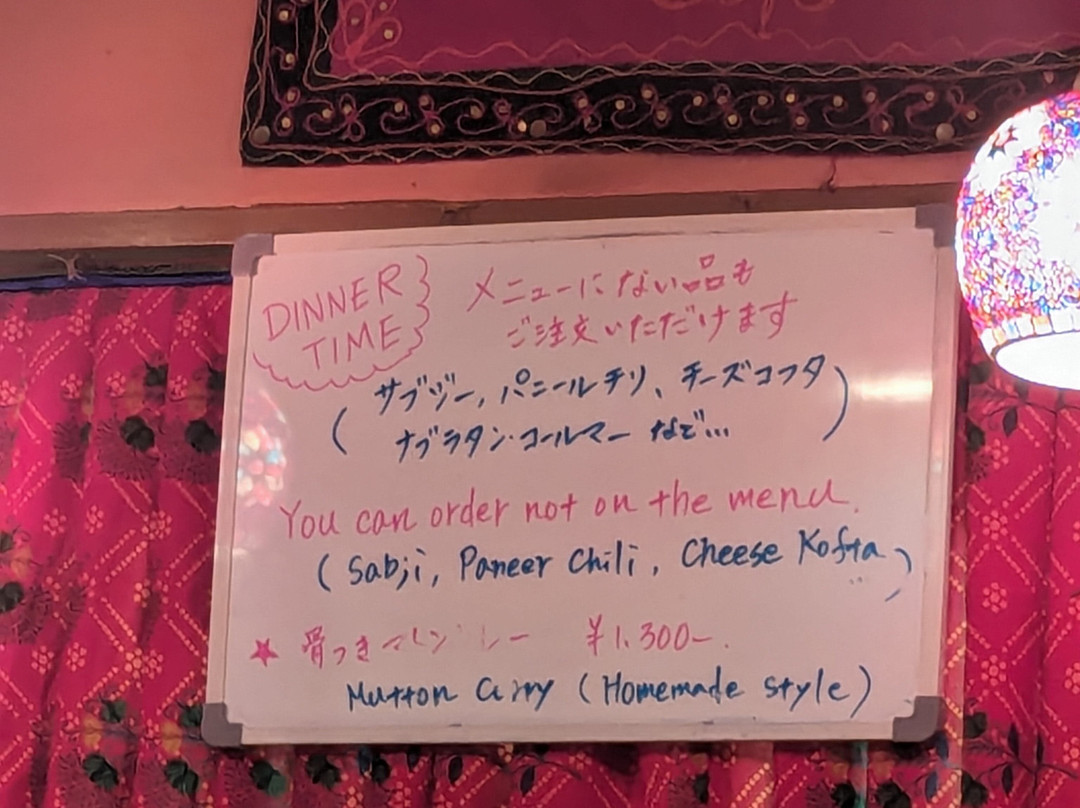 DINNER
TIME
メニューにない品も
ご注文いただけます
(サブジー, パニールチリ、チーズコフタ
ナブラタン・コールマー など…)
You can order not on the menu.
(Sabji, Paneer Chili, Cheese Kofta)
★ 骨つき ¥1.300-
Mutton Curry (Homemade style)